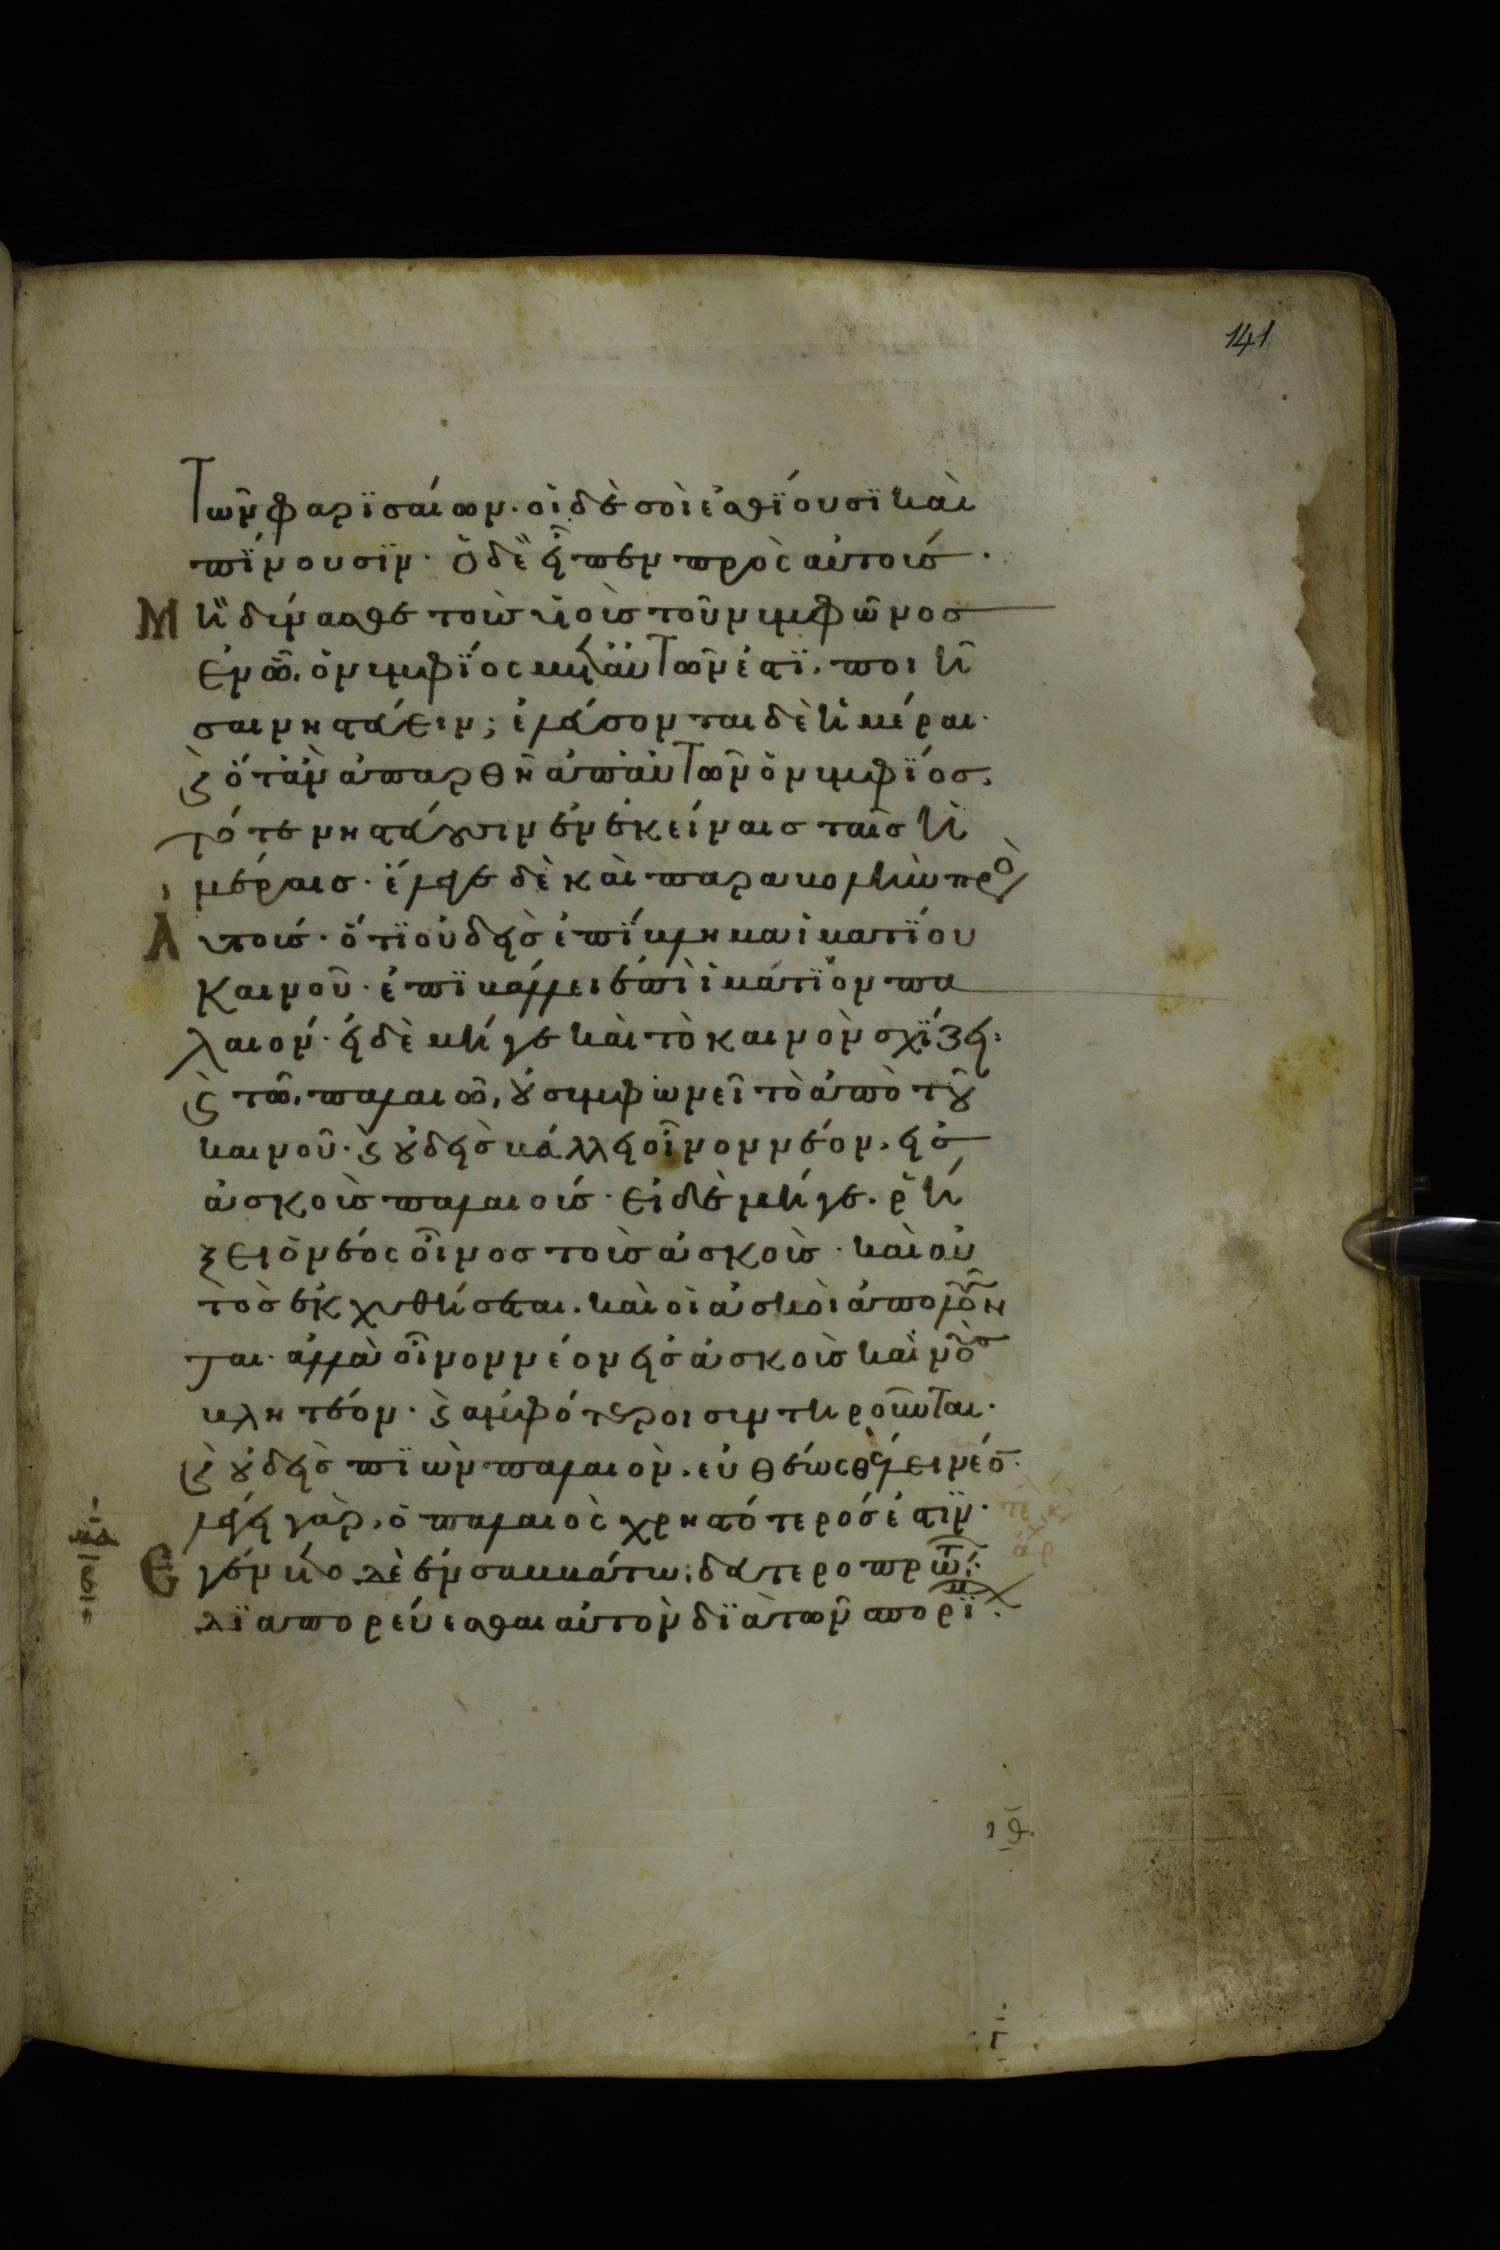 141
Τῶν φαρϊσαίων· οἱ δὲ σοὶ ἐσθϊουσϊ καὶ
πϊνουσϊν· ὁ δὲ εἶπεν πρὸς αὐτούσ·
Μὴ δύνασθε τοὺς υἱοὺς τοῦ νυμφῶνοσ
ἐν ᾧ ὁ νυμφϊος μετ αὐτῶν ἐστϊ. ποιῆ
σαι νηστεύειν; ἐλεύσονται δὲ ἡμέραι·
ϛ ὅταν ἀπαρθῆ ἀπ αὐτῶν ὁ νυμφϊοσ,
τότε νηστεύσουσιν ἐν ἐκείναισ ταῖσ ἡ
μέραισ· ἔλεγε δὲ καὶ παραβολὴν πρὸς
Αὐτούσ· ὅτϊ οὐδεὶσ ἐπϊβλημα ἱματϊου
καινοῦ· ἐπϊβάλλει ἐπὶ ἱμάτϊον πα
λαιόν· εἰ δὲ μήγε καὶ τὸ καινὸν σχϊζει·
ϛ τῶ παλαιῶ, οὐ συμφωνεῖ τὸ ἀπὸ τοῦ
καινοῦ· ϛ οὐδεὶσ βάλλει οἶνον νέον, εἰσ
ἀσκοὺς παλαιούσ· εἰ δὲ μήγε. ῥή
ξει ὁ νέος οἶνοσ τοὺς ἀσκούς· καὶ αὐ
τὸσ ἐκχυθήσεται. καὶ οἱ ἀσκοὶ ἀπολοῦν
ται· ἀλλὰ οἶνον νέον εἰσ ἀσκοὺς καινοὺσ
βλητέον· ϛ ἀμφότεροι συντηροῦνται·
ϛ οὐδεὶσ πϊὼν παλαιὸν, εὐθέως θέλει νέον·
λέγει γὰρ, ὁ παλαιὸς χρηστότεροσ ἐστϊν·
Ἐγένετο δὲ ἐν σαββάτω δευτεροπρώτω·
δϊαπορεύεσθαι αὐτὸν δϊὰ τῶν σπορϊμων·